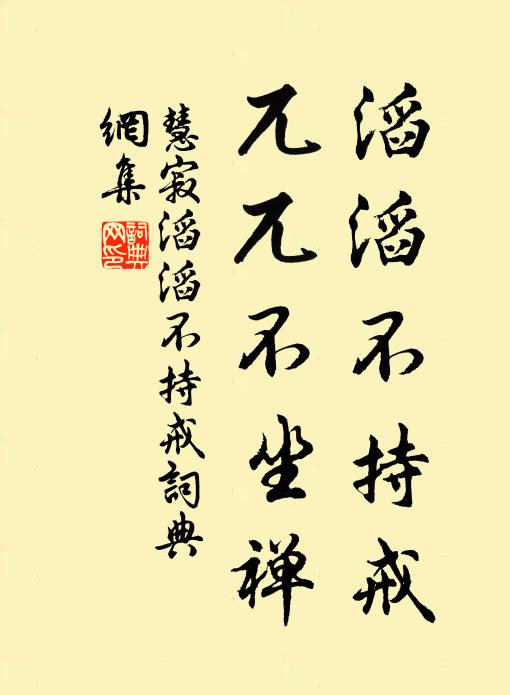 滔滔不持戒
兀兀不坐禅
慧寂滔滔不持戒詞典
網集
詞典
网印